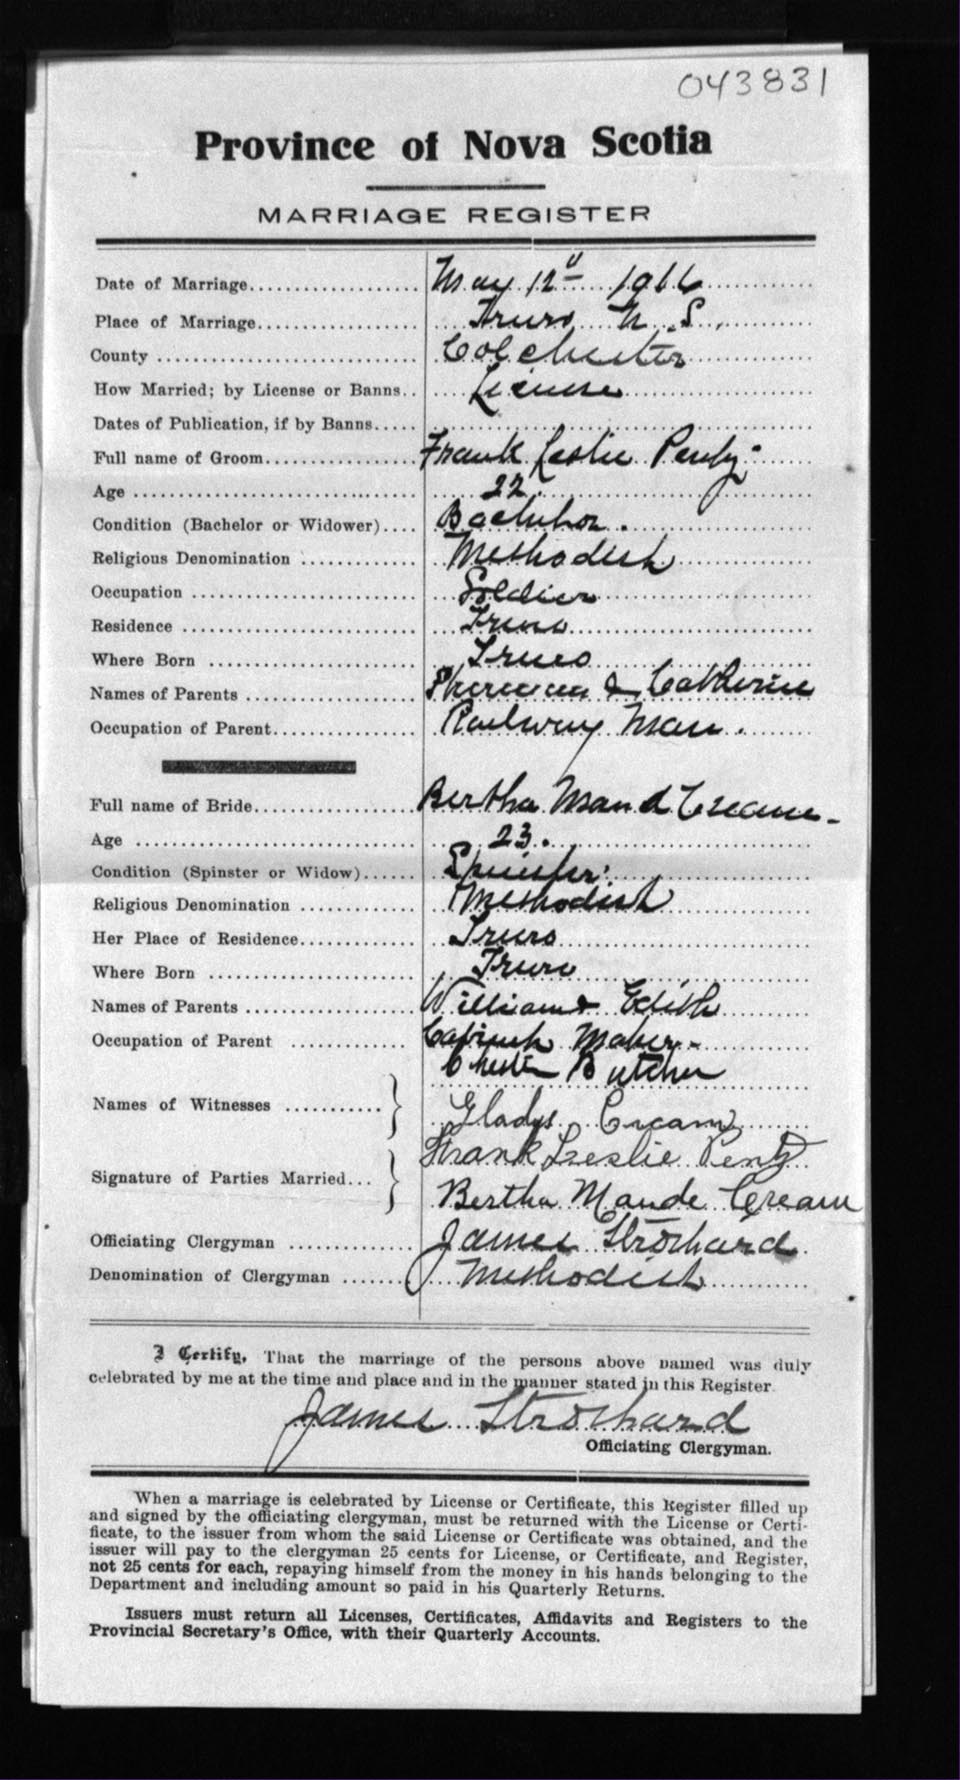 043831
Province of Nova Scotia
MARRIAGE REGISTER
Date of Marriage.................... May 12" 1916
Place of Marriage.................. Truro N.S.
County .............................. Colchester
How Married; by License or Banns.. License
Dates of Publication, if by Banns.....
Full name of Groom................. Frank Leslie Pentz
Age .................................. 22.
Condition (Bachelor or Widower).... Bachelor.
Religious Denomination ............. Methodist
Occupation .......................... Soldier
Residence ........................... Truro
Where Born ......................... Truro
Names of Parents ................... & Catherine
Occupation of Parent................ Railway Man.
Full name of Bride.................. Bertha Maud Creame
Age .................................. 23.
Condition (Spinster or Widow)...... Spinster
Religious Denomination ............. Methodist
Her Place of Residence............. Truro
Where Born ......................... Truro
Names of Parents ................... William & Edith
Occupation of Parent ............. Cabinet Maker
Chester Butcher
Names of Witnesses ...........
Gladys Cream
Frank Leslie Pentz
Signature of Parties Married...
Bertha Maude Cream
Officiating Clergyman .............. James Strothard
Denomination of Clergyman ....... Methodist
I Certify, That the marriage of the persons above named was duly
celebrated by me at the time and place and in the manner stated in this Register
James Strothard
Officiating Clergyman.
When a marriage is celebrated by License or Certificate, this Register filled up
and signed by the officiating clergyman, must be returned with the License or Certi-
ficate, to the issuer from whom the said License or Certificate was obtained, and the
issuer will pay to the clergyman 25 cents for License, or Certificate, and Register,
not 25 cents for each, repaying himself from the money in his hands belonging to the
Department and including amount so paid in his Quarterly Returns.
Issuers must return all Licenses, Certificates, Affidavits and Registers to the
Provincial Secretary's Office, with their Quarterly Accounts.